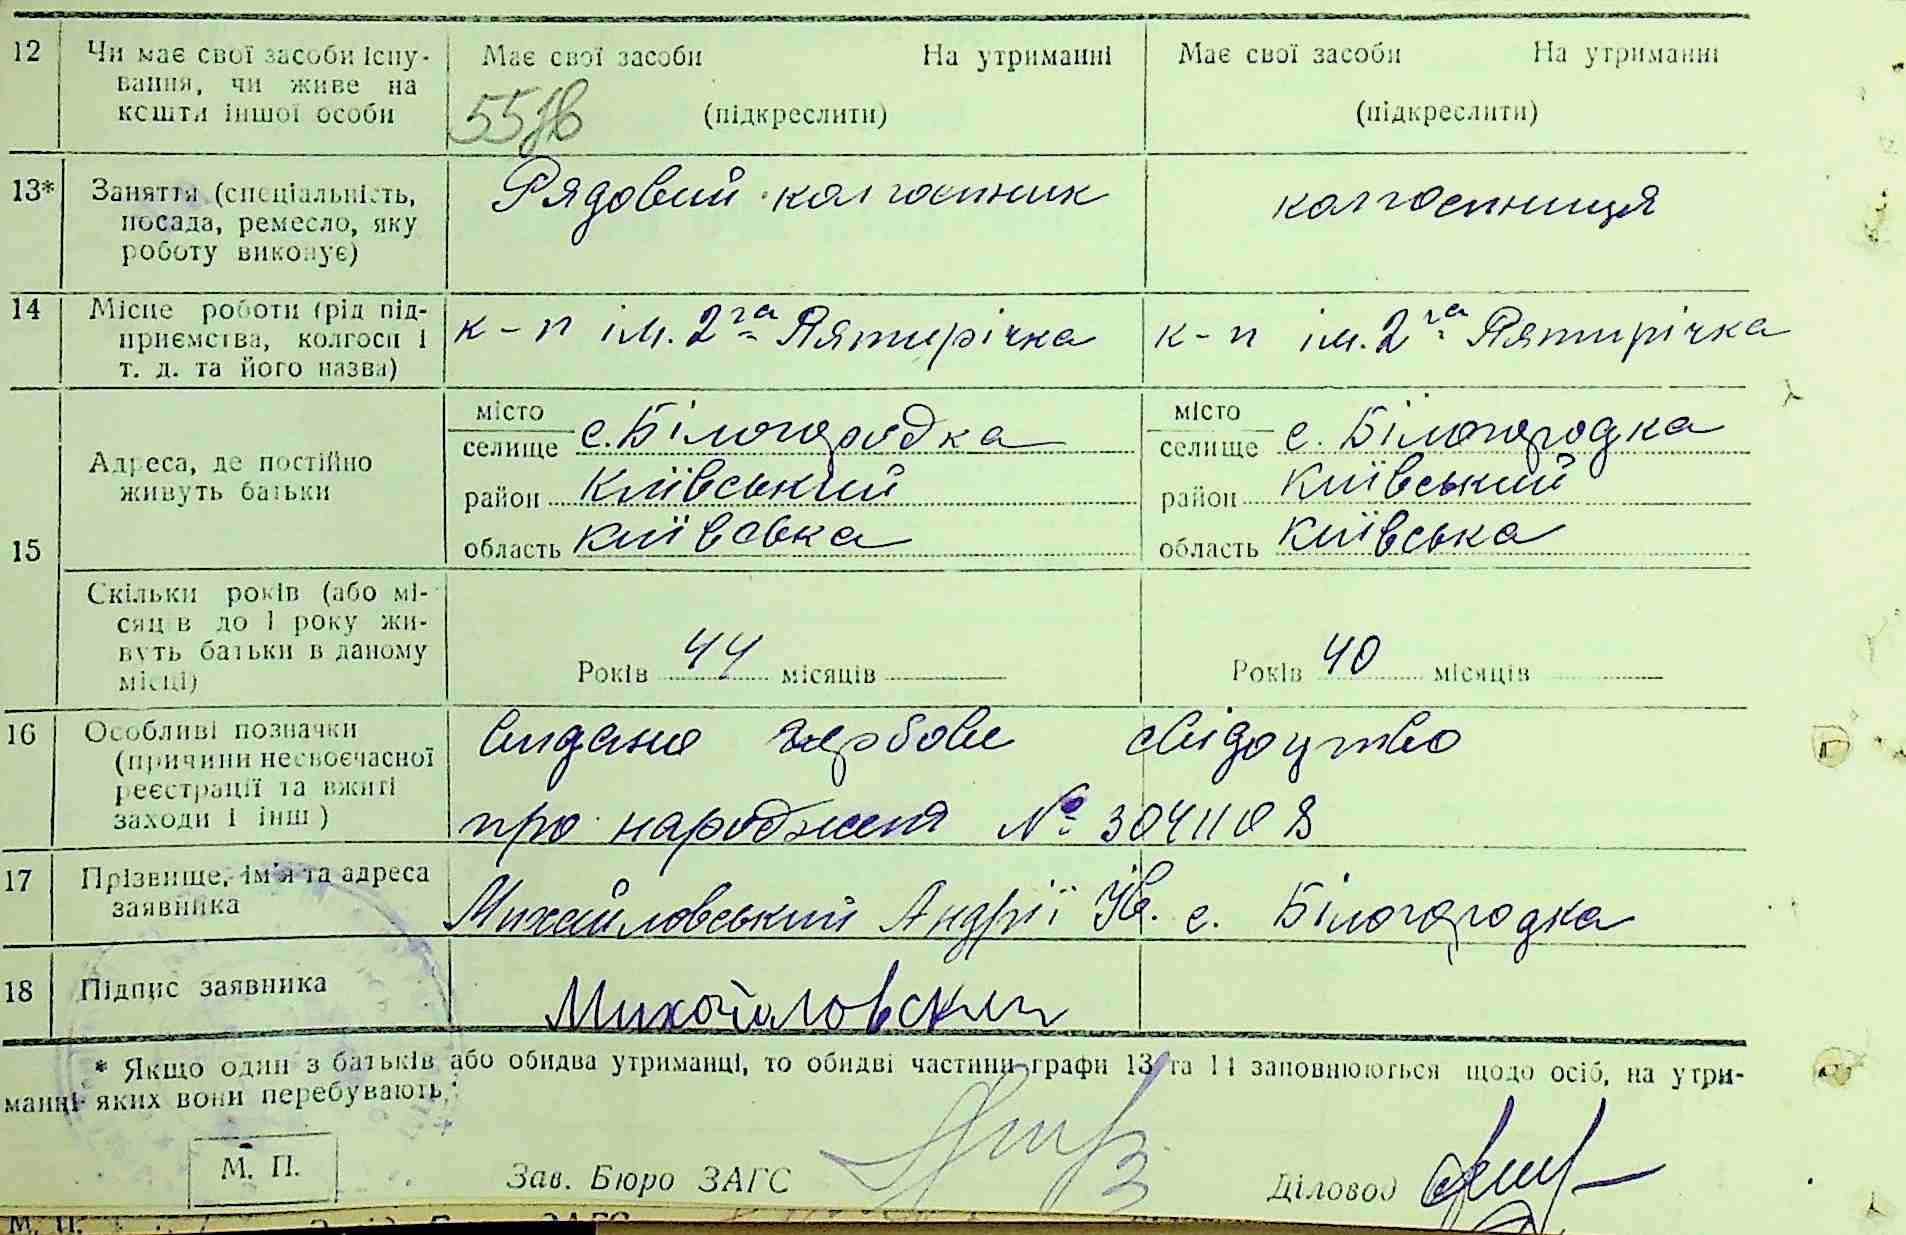 12 Чи має свої засоби існу- Має свої засоби На утриманні Має свої засоби На утриманні
вання, чи живе на
кошти іншої особи (підкреслити) (підкреслити)
13* Заняття (спеціальність, Рядовий колгоспник колгоспниця
посада, ремесло, яку
роботу виконує)
14 Місце роботи (рід під- к-п ім. 2га Пятирічка к-п ім. 2га Пятирічка
приємства, колгосп і
т. д. та його назва)
15 Адреса, де постійно місто селище с. Білогородка місто селище с. Білогородка
живуть батьки район Київський район Київський
область Київська область Київська
Скільки років (або мі-
сяців до 1 року жи-
вуть батьки в даному
місці) Років 44 місяців Років 40 місяців
16 Особливі позначки видано гербове свідоцтво
(причини несвоєчасної
реєстрації та вжиті про народження №
заходи і інш)
17 Прізвище, ім'я та адреса Михайловський Андрії Ів. с. Білогородка
заявника
18 Підпис заявника Михайловский
* Якщо один з батьків або обидва утриманці, то обидві частини графи 13 та 14 заповнюються щодо осіб, на утри-
манні яких вони перебувають.
М. П. Зав. Бюро ЗАГС Діловод
М. П.